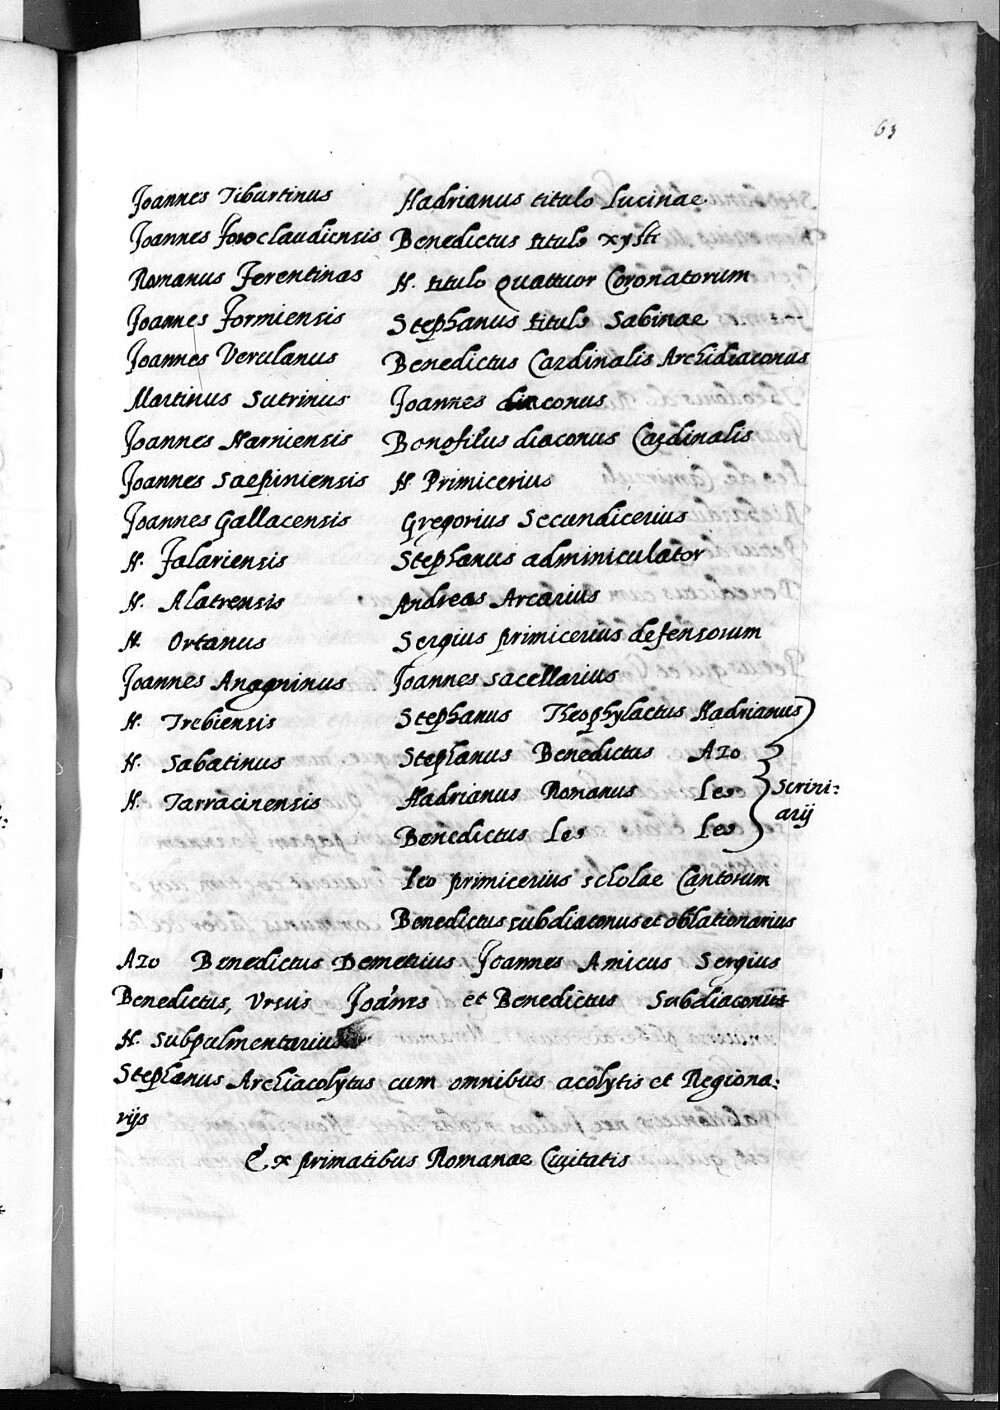 63
Joannes Tiburtinus Hadrianus titulo Lucinae
Joannes foroclaudiensis Benedictus titulo xysti
Romanus Ferentinas N. titulo quattuor Coronatorum
Joannes Formiensis Stephanus titulo Sabinae
Joannes Verulanus Benedictus Cardinalis Archidiaconus
Martinus Sutrinus Joannes diaconus
Joannes Narniensis Bonofilius diaconus Cardinalis
Joannes Saepiniensis N. Primicerius
Joannes Gallacensis Gregorius Secundicerius
N. Falariensis Stephanus adminiculator
N. Alatrensis Andreas Arcarius
N. Ortanus Sergius primicerius defensorum
Joannes Anagninus Joannes sacellarius
N. Trebiensis Stephanus Theophylactus Hadrianus
N. Sabatinus Stephanus Benedictus Azo
N. Tarracinensis Hadrianus Romanus Leo Scrini:
Benedictus Leo Leo arij
Leo primicerius scholae Cantorum
Benedictus subdiaconus et oblationarius
Azo Benedictus Demetrius Joannes Amicus Sergius
Benedictus, Ursus Joannes et Benedictus Subdiaconis
N. subpulmentarius
Stephanus Archiacolytus cum omnibus acolytis et Regiona:
rijs
Ex primatibus Romanae Civitatis